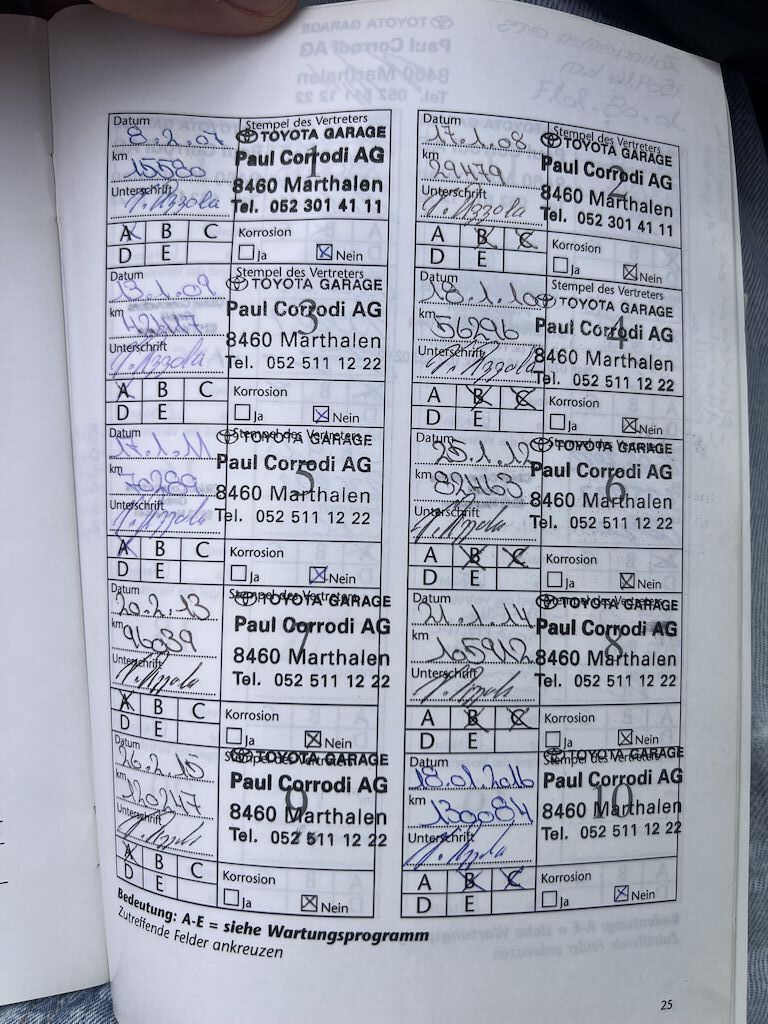 Datum
8.2.07
Stempel des Vertreters
TOYOTA GARAGE
km
15580
Paul Corrodi AG
1
Unterschrift
8460 Marthalen
Tel. 052 301 41 11
A B C
D E
Korrosion
Ja Nein
Datum
17.1.08
Stempel des Vertreters
TOYOTA GARAGE
km
29479
Paul Corrodi AG
2
Unterschrift
8460 Marthalen
Tel. 052 301 41 11
A B C
D E
Korrosion
Ja Nein
Datum
13.1.09
Stempel des Vertreters
TOYOTA GARAGE
km
Paul Corrodi AG
3
Unterschrift
8460 Marthalen
Tel. 052 511 12 22
A B C
D E
Korrosion
Ja Nein
Datum
18.1.10
Stempel des Vertreters
TOYOTA GARAGE
km
56296
Paul Corrodi AG
4
Unterschrift
8460 Marthalen
Tel. 052 511 12 22
A B C
D E
Korrosion
Ja Nein
Datum
17.1.11
Stempel des Vertreters
TOYOTA GARAGE
km
70289
Paul Corrodi AG
5
Unterschrift
8460 Marthalen
Tel. 052 511 12 22
A B C
D E
Korrosion
Ja Nein
Datum
Stempel des Vertreters
TOYOTA GARAGE
km
82463
Paul Corrodi AG
6
Unterschrift
8460 Marthalen
Tel. 052 511 12 22
A B C
D E
Korrosion
Ja Nein
Datum
20.2.13
Stempel des Vertreters
TOYOTA GARAGE
km
96039
Paul Corrodi AG
7
Unterschrift
8460 Marthalen
Tel. 052 511 12 22
A B C
D E
Korrosion
Ja Nein
Datum
21.1.14
Stempel des Vertreters
TOYOTA GARAGE
km
105912
Paul Corrodi AG
8
Unterschrift
8460 Marthalen
Tel. 052 511 12 22
A B C
D E
Korrosion
Ja Nein
Datum
26.2.15
Stempel des Vertreters
TOYOTA GARAGE
km
120247
Paul Corrodi AG
9
Unterschrift
8460 Marthalen
Tel. 052 511 12 22
A B C
D E
Korrosion
Ja Nein
Datum
18.01.2016
Stempel des Vertreters
TOYOTA GARAGE
km
130084
Paul Corrodi AG
10
Unterschrift
8460 Marthalen
Tel. 052 511 12 22
A B C
D E
Korrosion
Ja Nein
Bedeutung: A-E = siehe Wartungsprogramm
Zutreffende Felder ankreuzen
25